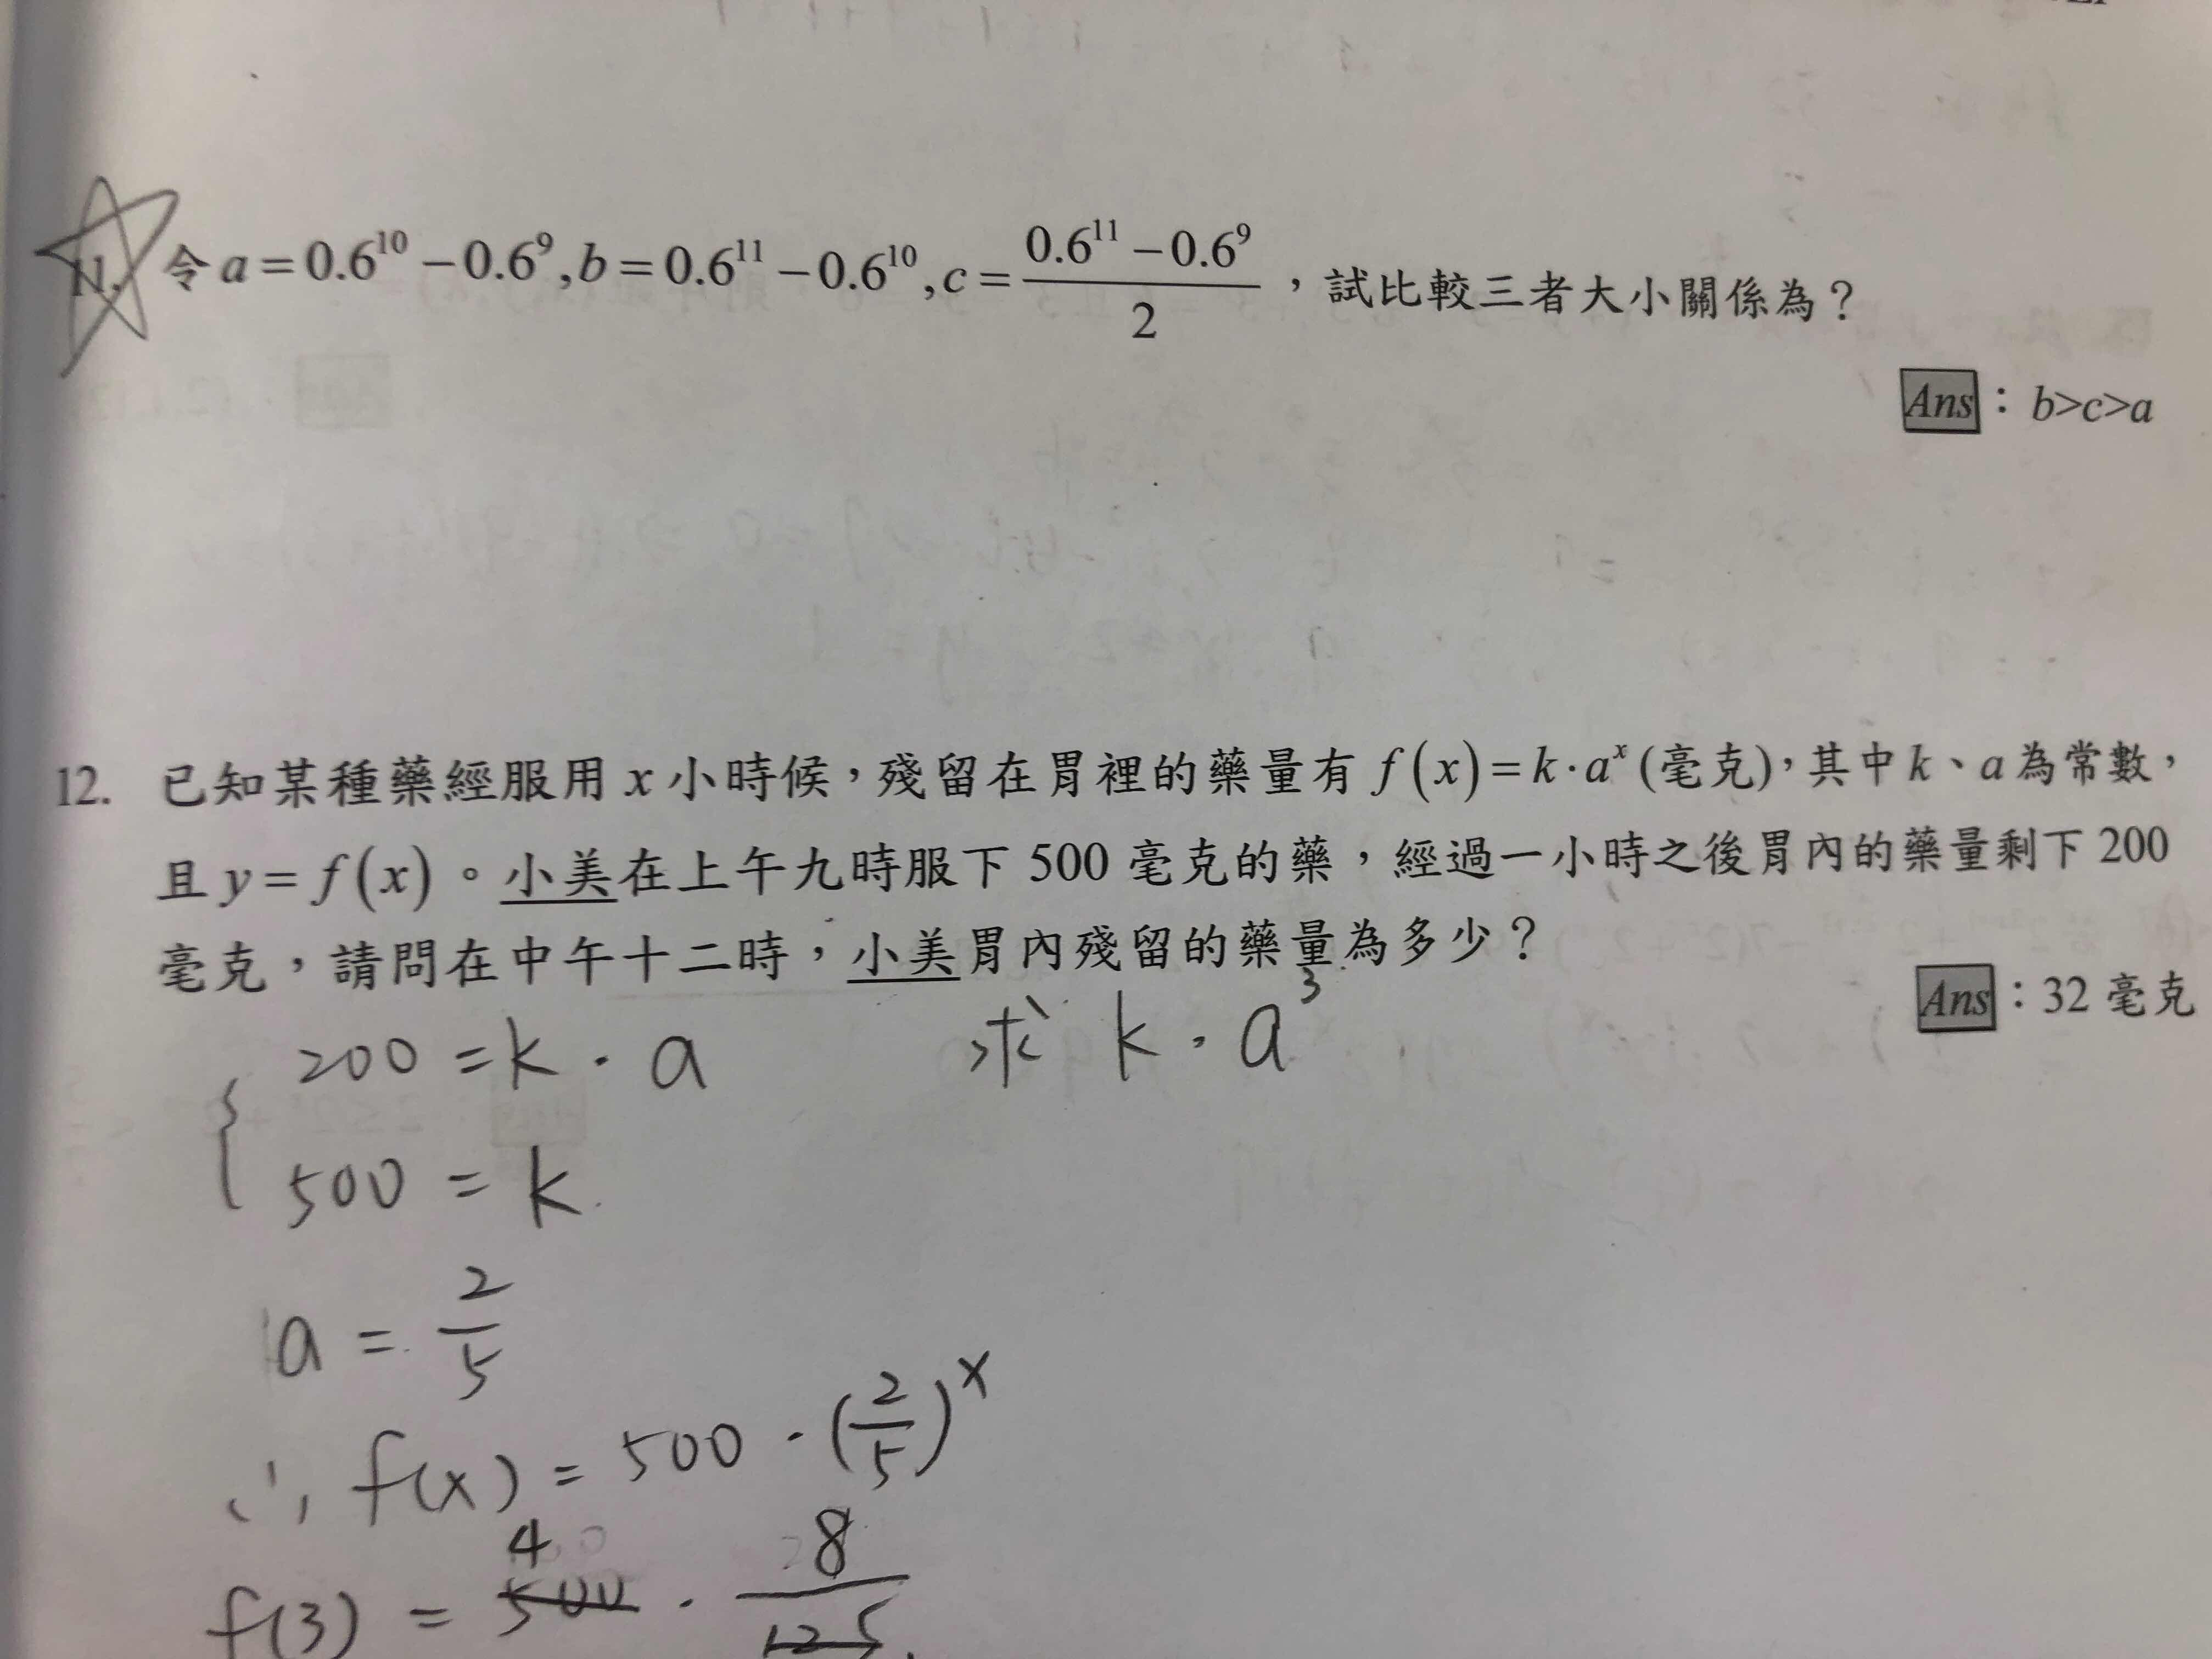 11. 令 a = 0.6¹⁰ − 0.6⁹, b = 0.6¹¹ − 0.6¹⁰, c = (0.6¹¹ − 0.6⁹)/2，試比較三者大小關係為？
Ans：b>c>a
12. 已知某種藥經服用 x 小時候，殘留在胃裡的藥量有 f(x) = k·aˣ (毫克)，其中 k、a 為常數，
且 y = f(x)。小美在上午九時服下 500 毫克的藥，經過一小時之後胃內的藥量剩下 200
毫克，請問在中午十二時，小美胃內殘留的藥量為多少？
Ans：32 毫克
200 = k · a 求 k · a³
500 = k
a = 2/5
∴ f(x) = 500 · (2/5)ˣ
4
f(3) = 500 · 8/125